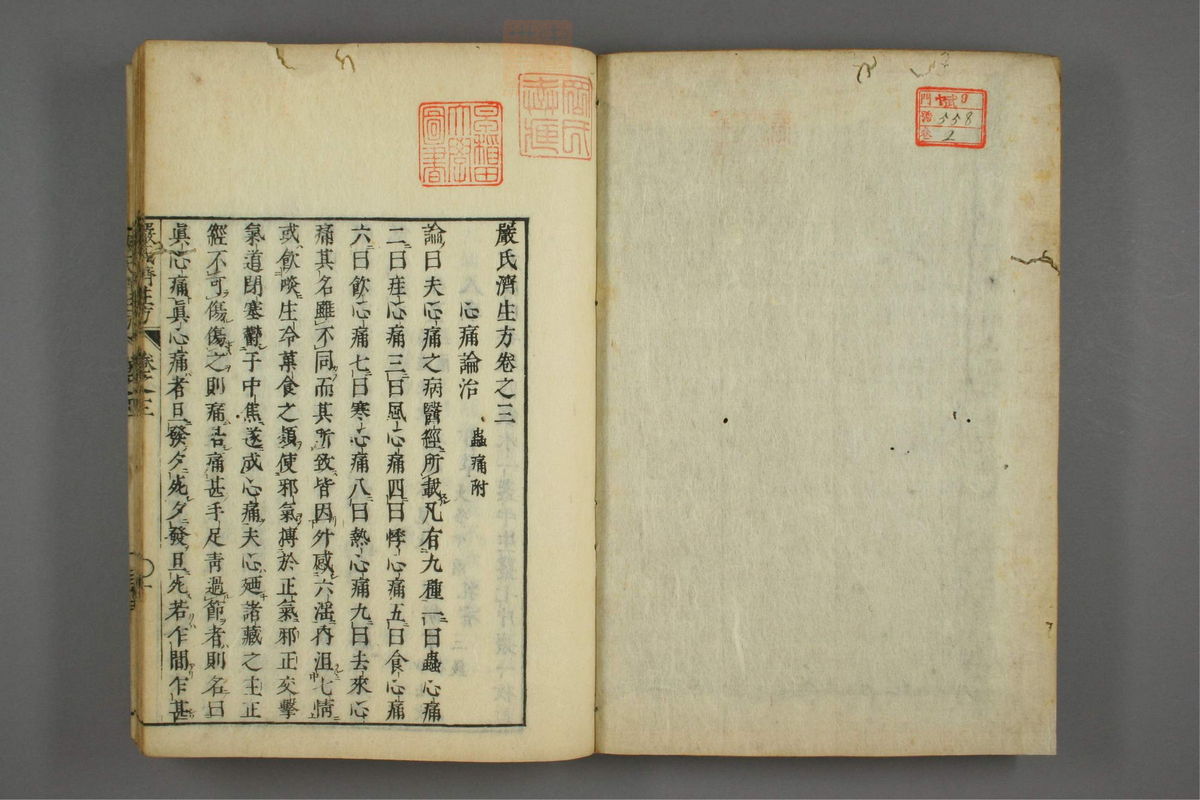 嚴氏濟生方卷之三
心痛論治 蟲痛附
論曰夫心痛之病醫經所載凡有九種一曰蟲心痛
二曰疰心痛三曰風心痛四曰悸心痛五曰食心痛
六曰飮心痛七曰寒心痛八曰熱心痛九曰去來心
痛其名雖不同而其所致皆因外感六淫內沮七情
或飮啖生冷菓食之類使邪氣搏於正氣邪正交擊
氣道閉塞鬱于中焦遂成心痛夫心廼諸藏之主正
經不可傷傷之則痛若痛甚手足靑過節者則名曰
眞心痛眞心痛者旦發夕死夕發旦死若乍間乍甚
嚴氏濟生方 卷之三 一
早稻田大學圖書
門 9
號 558
卷 2